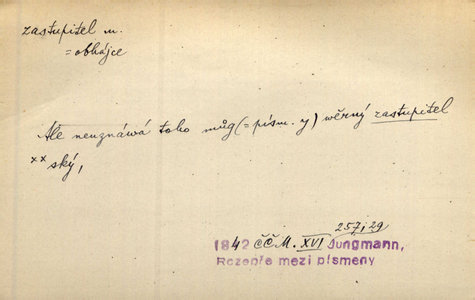 zastupitel m.
= obhájce
Ale neuznáwá toho můg (= písm. y) wěrný zastupitel
××ský,
257, 29
1842 ČČM. XVI Jungmann,
Rozepře mezi písmeny